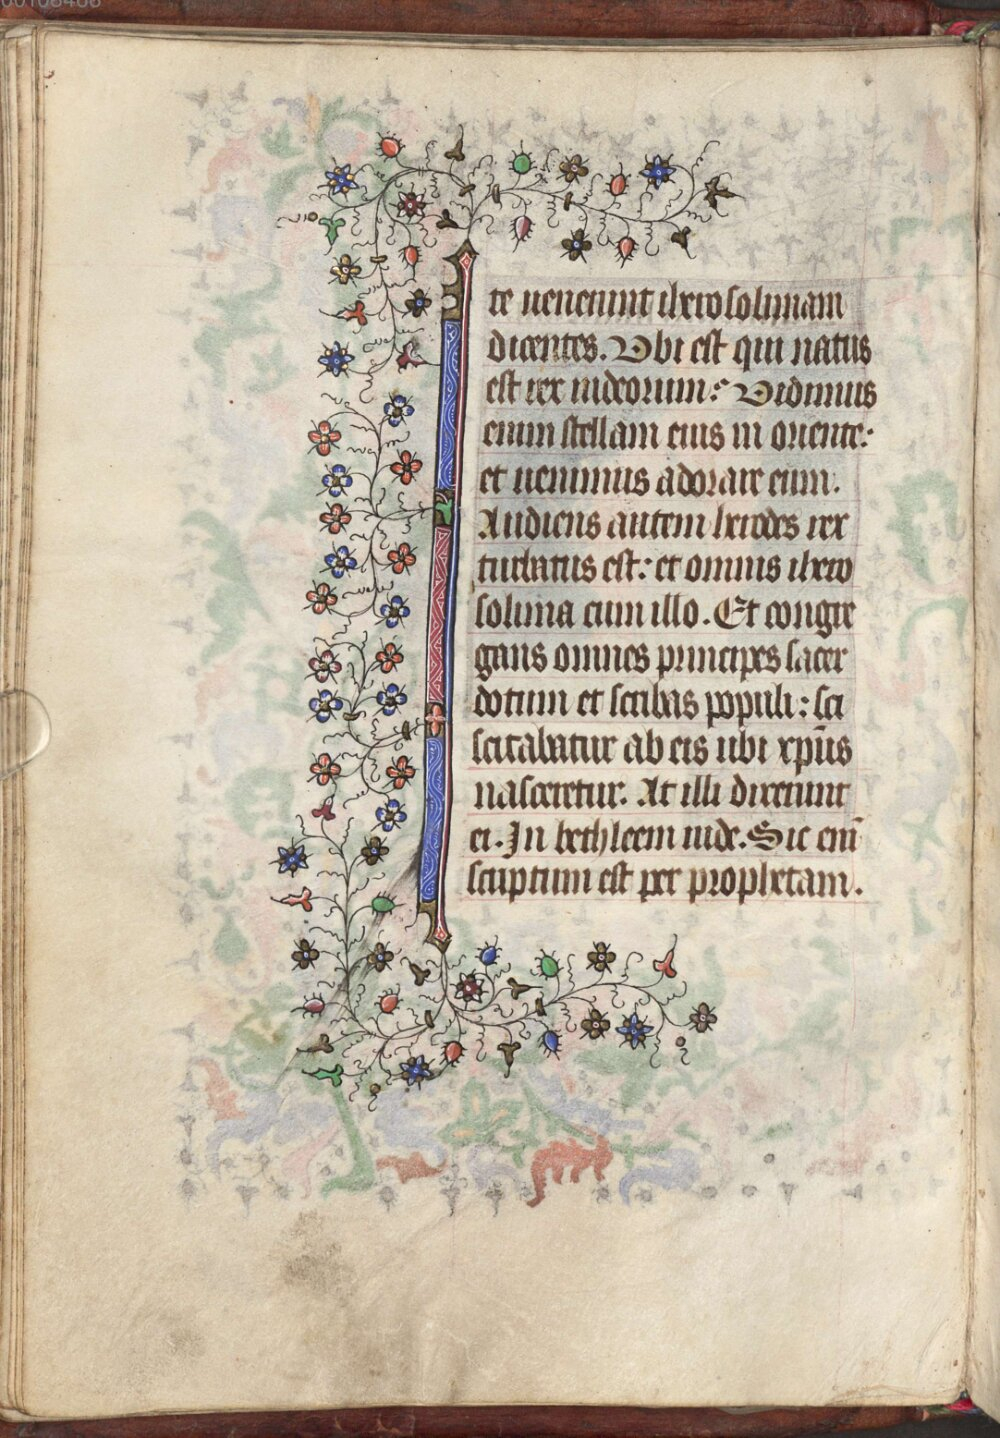 te uenerunt iherosolimam
dicentes. Vbi est qui natus
est rex iudeorum: Vidimus
enim stellam eius in oriente:
et uenimus adorare eum.
Audiens autem herodes rex
turbatus est: et omnis ihero
solima cum illo. Et congre
gans omnes principes sacer
dotum et scribas populi: sci
scitabatur ab eis ubi xp̄us
nasceretur. At illi dixerunt
ei. In bethleem iude. Sic eni̅
scriptum est per prophetam.